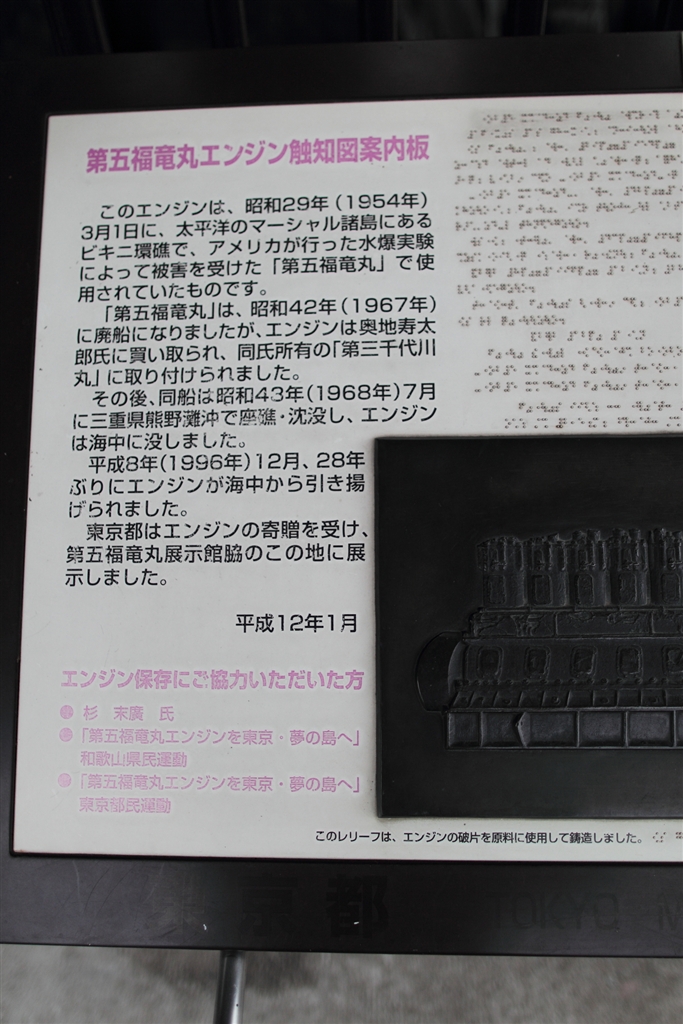 第五福竜丸エンジン触知図案内板
このエンジンは、昭和29年(1954年)
3月1日に、太平洋のマーシャル諸島にある
ビキニ環礁で、アメリカが行った水爆実験
によって被害を受けた「第五福竜丸」で使
用されていたものです。
「第五福竜丸」は、昭和42年(1967年)
に廃船になりましたが、エンジンは奥地寿太
郎氏に買い取られ、同氏所有の「第三千代川
丸」に取り付けられました。
その後、同船は昭和43年(1968年)7月
に三重県熊野灘沖で座礁・沈没し、エンジン
は海中に没しました。
平成8年(1996年)12月、28年
ぶりにエンジンが海中から引き揚
げられました。
東京都はエンジンの寄贈を受け、
第五福竜丸展示館脇のこの地に展
示しました。
平成12年1月
エンジン保存にご協力いただいた方
杉 末廣 氏
「第五福竜丸エンジンを東京・夢の島へ」
和歌山県民運動
「第五福竜丸エンジンを東京・夢の島へ」
東京都民運動
このレリーフは、エンジンの破片を原料に使用して鋳造しました。
東京都 TOKYO M